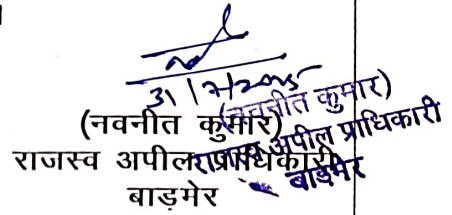 31/7/2025
(नवनीत कुमार)
राजस्व अपील प्राधिकारी
बाड़मेर
(नवनीत कुमार)
राजस्व अपील प्राधिकारी
बाड़मेर